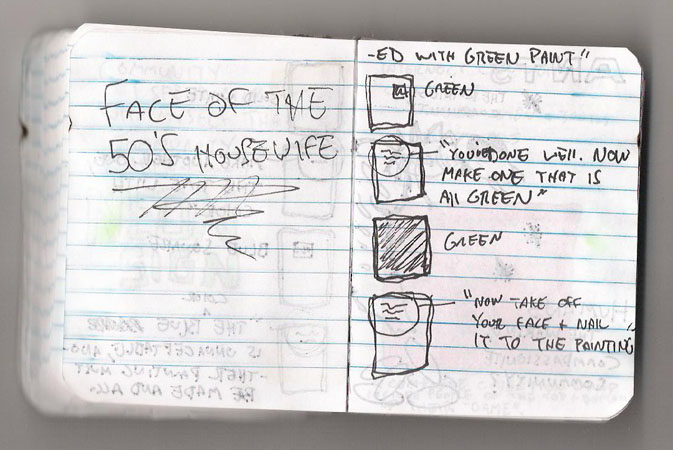 FACE OF THE
50'S HOUSEWIFE
-ED WITH GREEN PAINT"
GREEN
"YOU'VE DONE WELL. NOW
MAKE ONE THAT IS
All GREEN"
GREEN
"NOW TAKE OFF
YOUR FACE + NAIL
IT TO THE PAINTING"